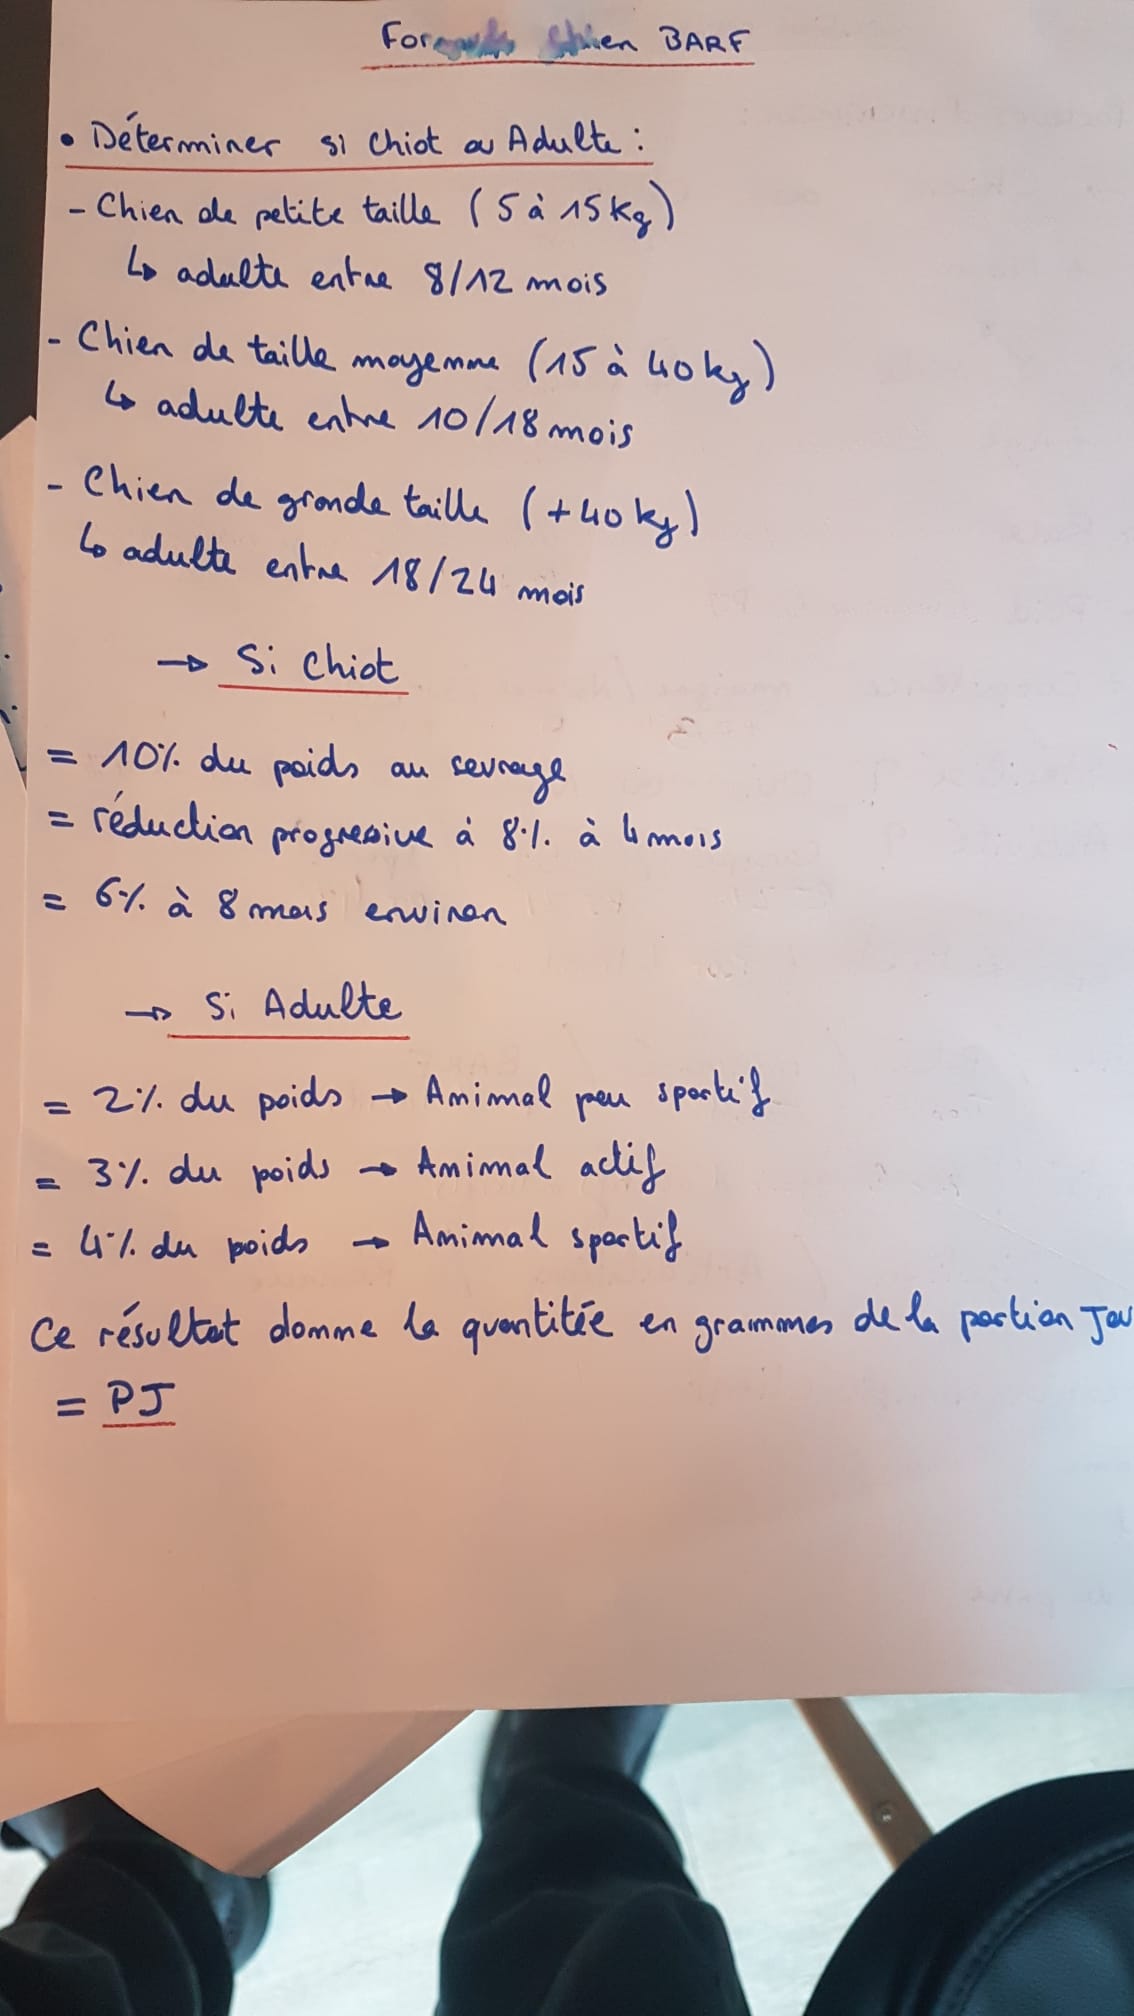 Formule Chien BARF
• Déterminer si Chiot ou Adulte :
- Chien de petite taille (5 à 15Kg)
↳ adulte entre 8/12 mois
- Chien de taille moyenne (15 à 40kg)
↳ adulte entre 10/18 mois
- Chien de grande taille (+40kg)
↳ adulte entre 18/24 mois
→ Si Chiot
= 10% du poids au sevrage
= réduction progressive à 8% à 4 mois
= 6% à 8 mois environ
→ Si Adulte
= 2% du poids → Animal peu sportif
= 3% du poids → Animal actif
= 4% du poids → Animal sportif
Ce résultat donne la quantitée en grammes de la portion Jou
= PJ